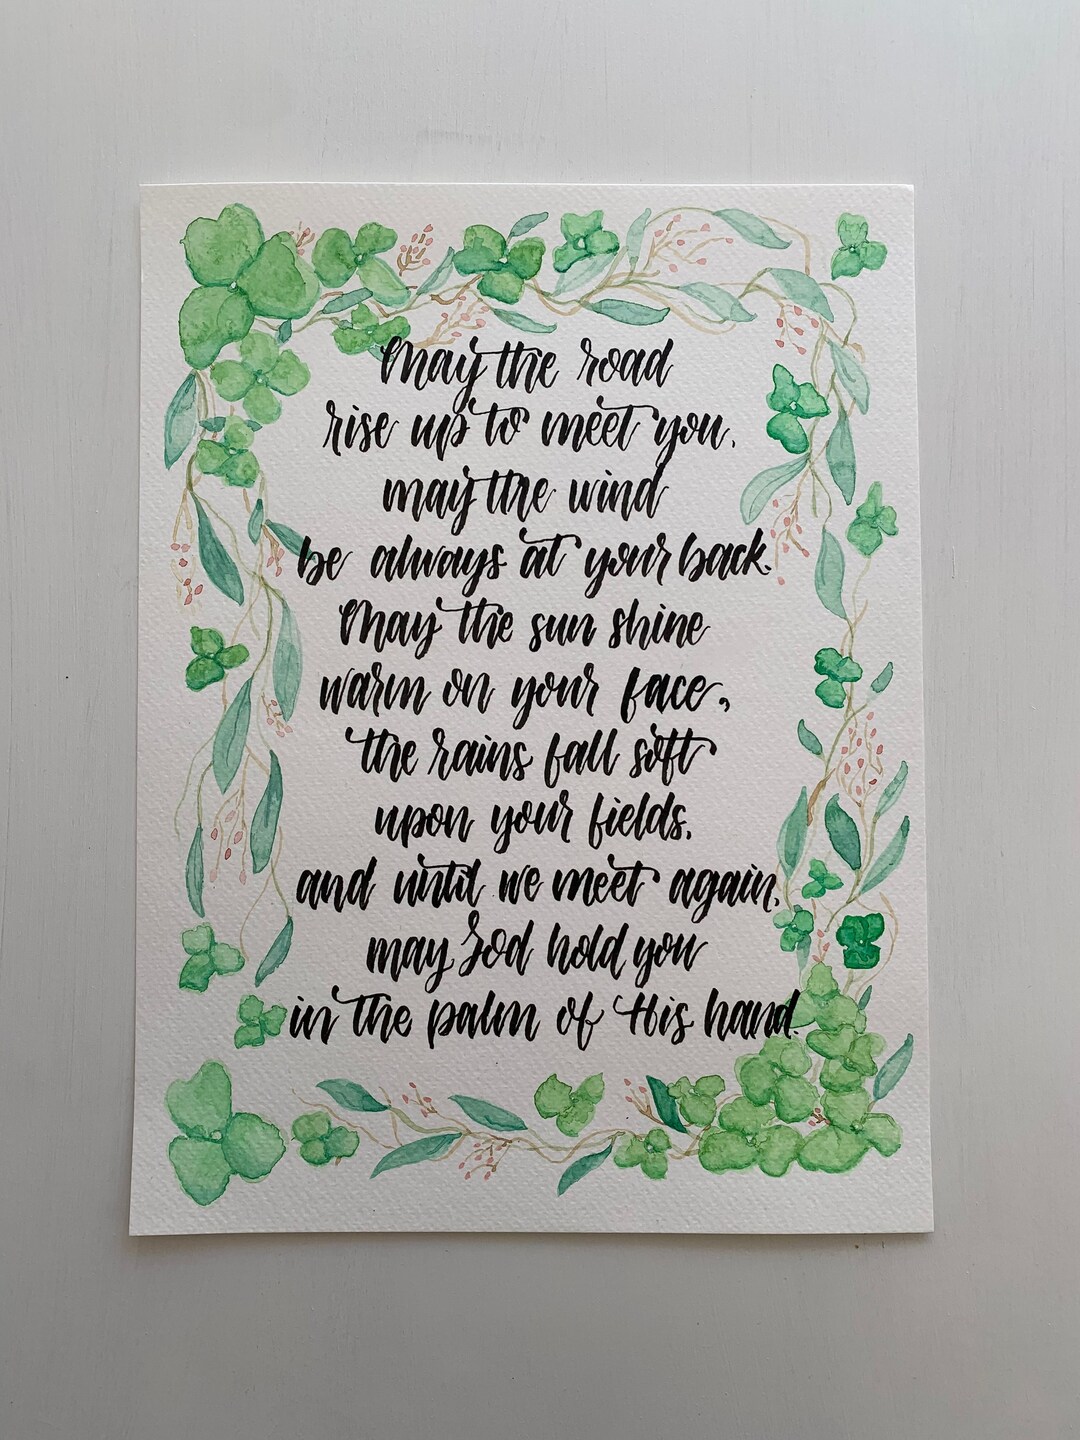 May the road
rise up to meet you.
may the wind
be always at your back.
May the sun shine
warm on your face,
the rains fall soft
upon your fields.
and until we meet again,
may God hold you
in the palm of His hand.